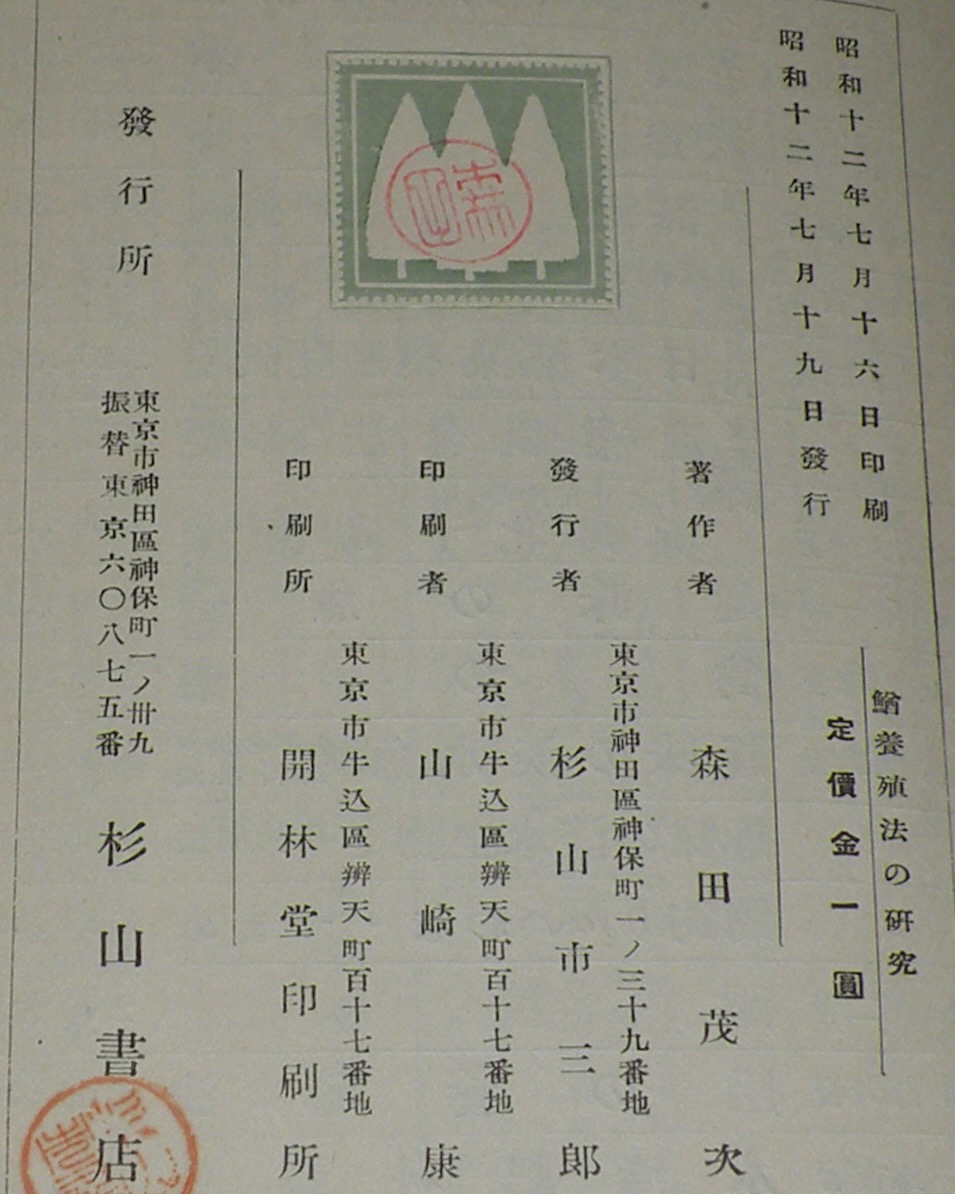 昭和十二年七月十六日印刷
昭和十二年七月十九日發行
鰌養殖法の研究
定價金一圓
著作者 森田茂次
發行者 東京市神田區神保町一ノ三十九番地
杉山市三郎
印刷者 東京市牛込區辨天町百十七番地
山崎康
印刷所 東京市牛込區辨天町百十七番地
開林堂印刷所
發行所 東京市神田區神保町一ノ卅九
振替東京六〇八七五番
杉山書店
森田